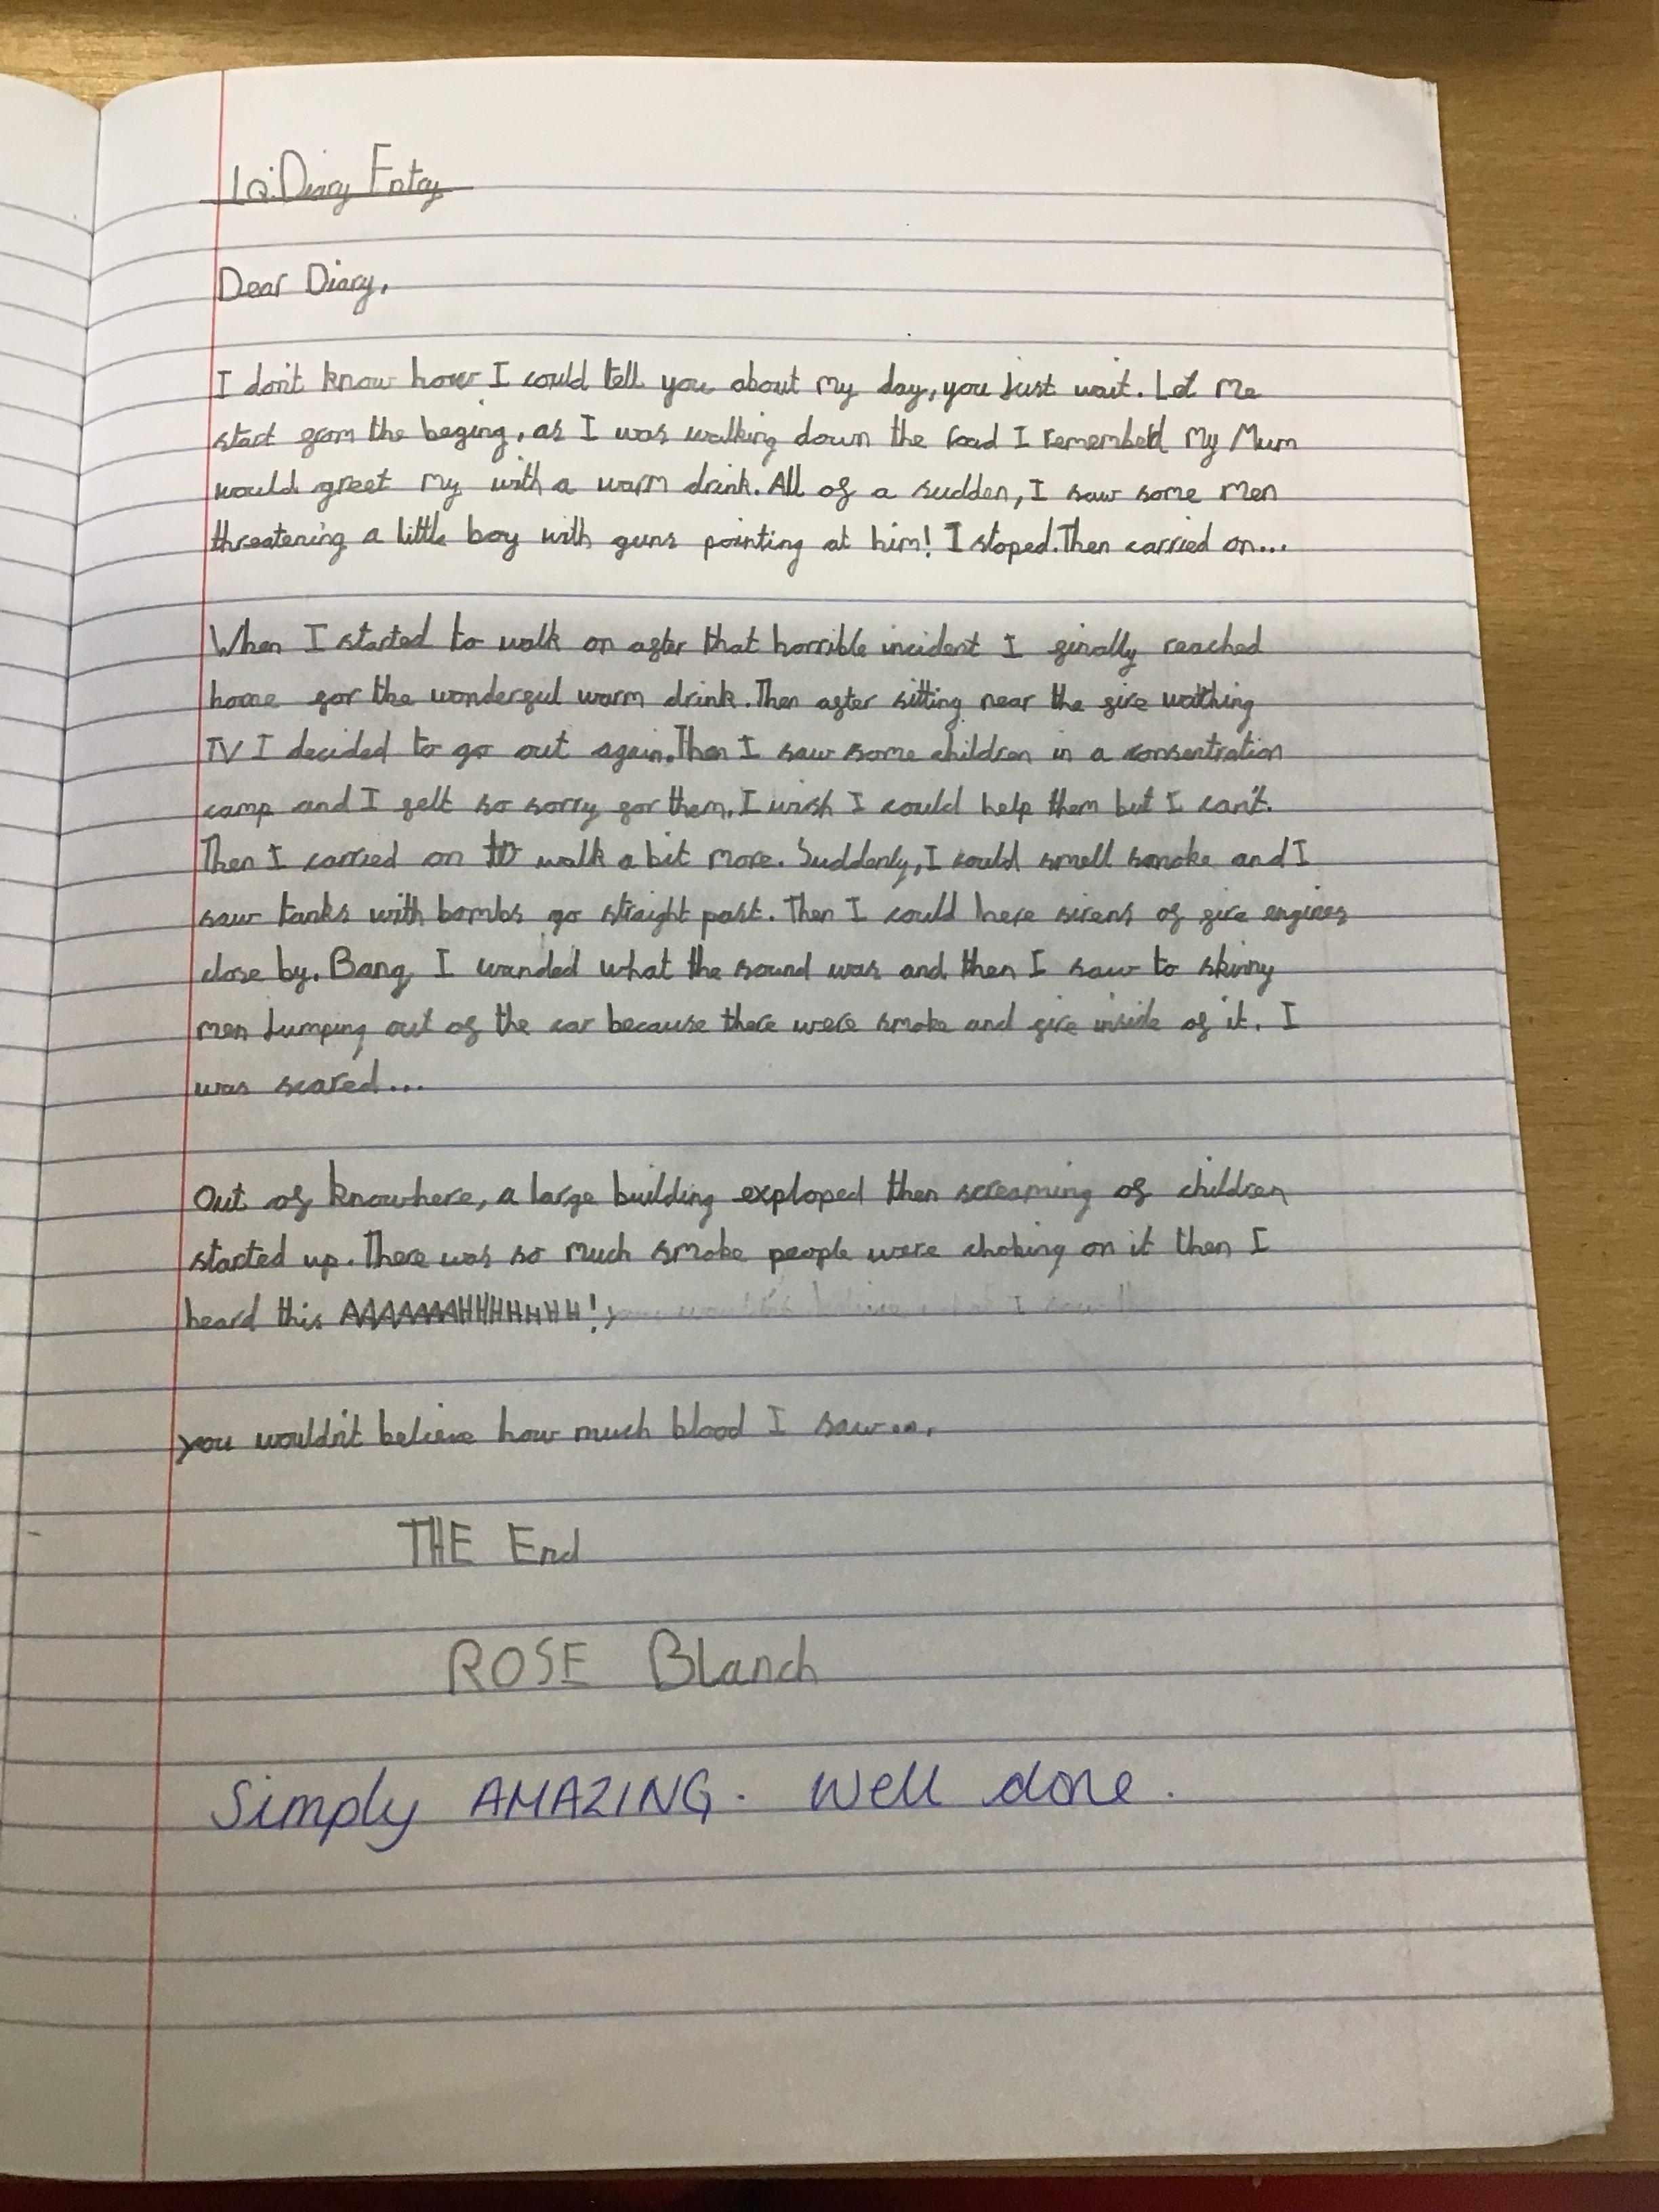 LQ: Diary Entry
Dear Diary,
I don't know how I could tell you about my day, you just wait. Let me
start from the beging, as I was walking down the road I rememberd my Mum
would greet my with a warm drink. All of a sudden, I saw some men
threatening a little boy with guns pointing at him! I stoped. Then carried on...
When I started to walk on after that horrible incident I finally reached
home for the wonderful warm drink. Then after sitting near the fire watching
TV I decided to go out again. Then I saw some children in a consentration
camp and I felt so sorry for them. I wish I could help them but I can't.
Then I carried on to walk a bit more. Suddenly, I could smell smoke and I
saw tanks with bombs go straight past. Then I could here sirens of fire engines
close by. Bang I wanded what the sound was and then I saw to skinny
men jumping out of the car because there were smoke and fire inside of it. I
was scared...
Out of knowhere, a large building exploped then screaming of children
started up. There was so much smoke people were choking on it then I
heard this AAAAAAAHHHHHHH! you wouldn't believe what I saw
you wouldn't believe how much blood I saw...
THE End
ROSE Blanch
Simply AMAZING. Well done.